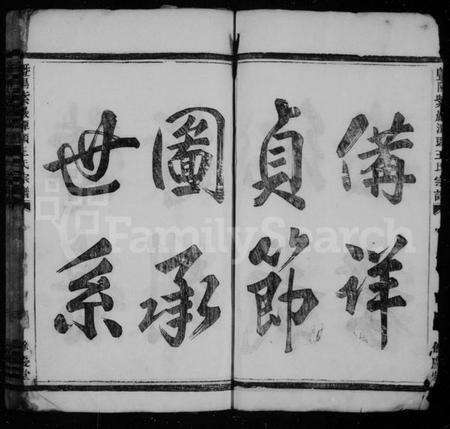 備详
貞節
圖承
世系
FamilySearch